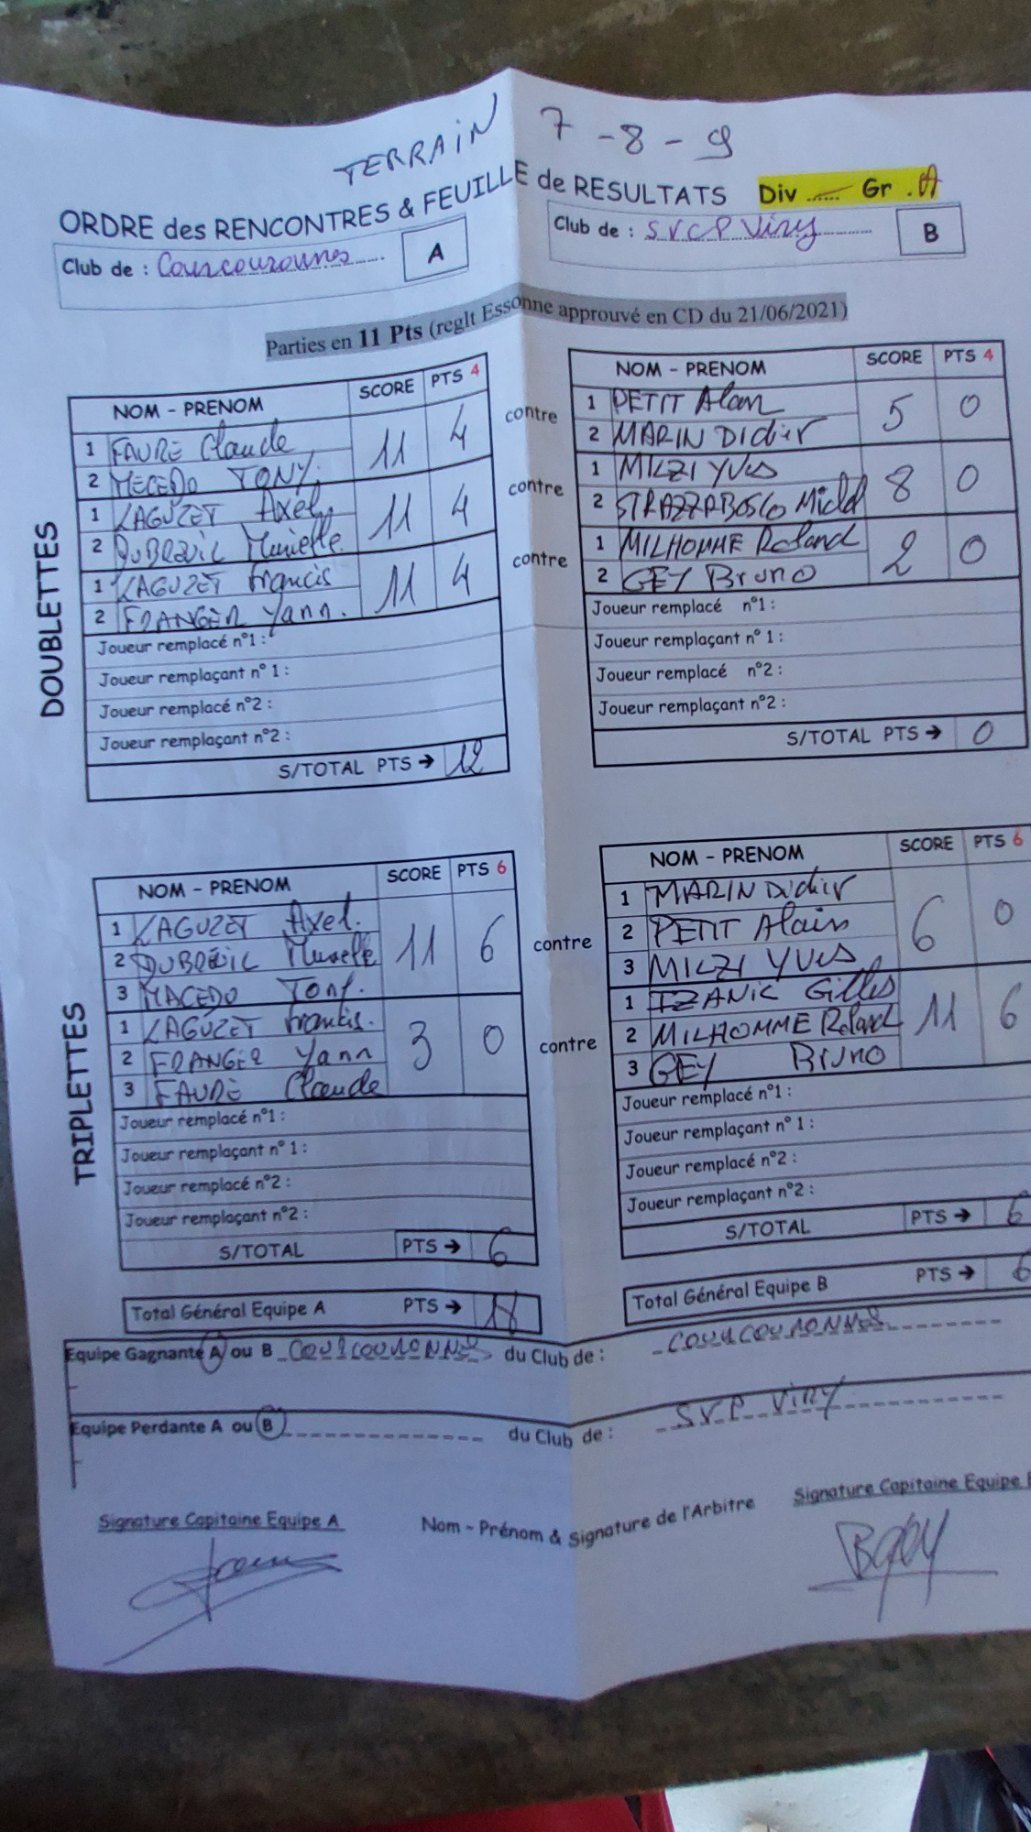 TERRAIN 7 - 8 - 9
ORDRE des RENCONTRES & FEUILLE de RESULTATS Div ...... Gr . A
Club de : Courcouronnes A
Club de : SVCP Viry B
Parties en 11 Pts (reglt Essonne approuvé en CD du 21/06/2021)
DOUBLETTES
NOM - PRENOM SCORE PTS 4
1 FAURE Claude 11 4
2 MECEDO TONY.
1 LAGUZET Axel 11 4
2 DUBREUIL Murielle
1 LAGUZET Francis 11 4
2 FRANGER Yann.
Joueur remplacé n°1 :
Joueur remplaçant n° 1 :
Joueur remplacé n°2 :
Joueur remplaçant n°2 :
S/TOTAL PTS → 12
contre
contre
contre
NOM - PRENOM SCORE PTS 4
1 PETIT Alain 5 0
2 MARIN Didier
1 MILZI YVES 8 0
2 STRAZZABOSCO Michel
1 MILHOMME Roland 2 0
2 GEY Bruno
Joueur remplacé n°1 :
Joueur remplaçant n° 1 :
Joueur remplacé n°2 :
Joueur remplaçant n°2 :
S/TOTAL PTS → 0
TRIPLETTES
NOM - PRENOM SCORE PTS 6
1 LAGUZET Axel. 11 6
2 DUBREUIL Murielle
3 MACEDO Tony.
1 LAGUZET Francis. 3 0
2 FRANGER Yann
3 FAURE Claude
Joueur remplacé n°1 :
Joueur remplaçant n° 1 :
Joueur remplacé n°2 :
Joueur remplaçant n°2 :
S/TOTAL PTS → 6
contre
contre
NOM - PRENOM SCORE PTS 6
1 MARIN Didier 6 0
2 PETIT Alain
3 MILZI YVES
1 IZANIC Gilles 11 6
2 MILHOMME Roland
3 GEY Bruno
Joueur remplacé n°1 :
Joueur remplaçant n° 1 :
Joueur remplacé n°2 :
Joueur remplaçant n°2 :
S/TOTAL PTS → 6
Total Général Equipe A PTS → 18
Total Général Equipe B PTS → 6
Equipe Gagnante A ou B COURCOURONNES du Club de : COURCOURONNES
Equipe Perdante A ou B du Club de : SVP Viry
Signature Capitaine Equipe A
Nom - Prénom & Signature de l'Arbitre
Signature Capitaine Equipe